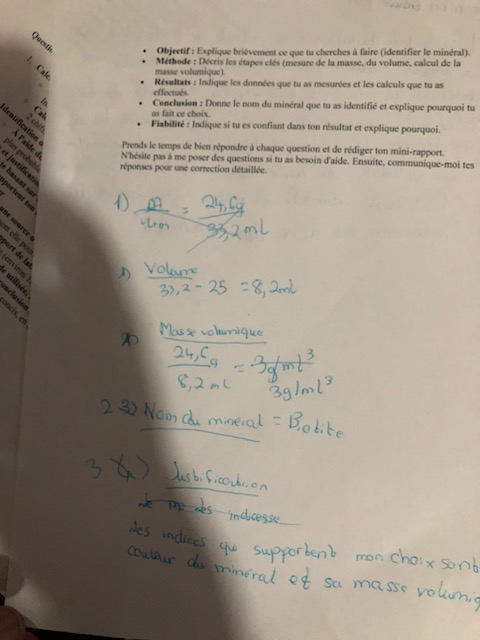 • Objectif : Explique brièvement ce que tu cherches à faire (identifier le minéral).
• Méthode : Décris les étapes clés (mesure de la masse, du volume, calcul de la
masse volumique).
• Résultats : Indique les données que tu as mesurées et les calculs que tu as
effectués.
• Conclusion : Donne le nom du minéral que tu as identifié et explique pourquoi tu
as fait ce choix.
• Fiabilité : Indique si tu es confiant dans ton résultat et explique pourquoi.
Prends le temps de bien répondre à chaque question et de rédiger ton mini-rapport.
N'hésite pas à me poser des questions si tu as besoin d'aide. Ensuite, communique-moi tes
réponses pour une correction détaillée.
1) m = 24,6g
33,2mL
Volume
33,2 - 25 = 8,2ml
Masse volumique
24,6g = 3g/ml³
8,2ml 3g/ml³
2 Nom du minéral = Biotite
3 Justification
des indices
des indices qui supportent mon choix sont
couleur du minéral et sa masse volumiq